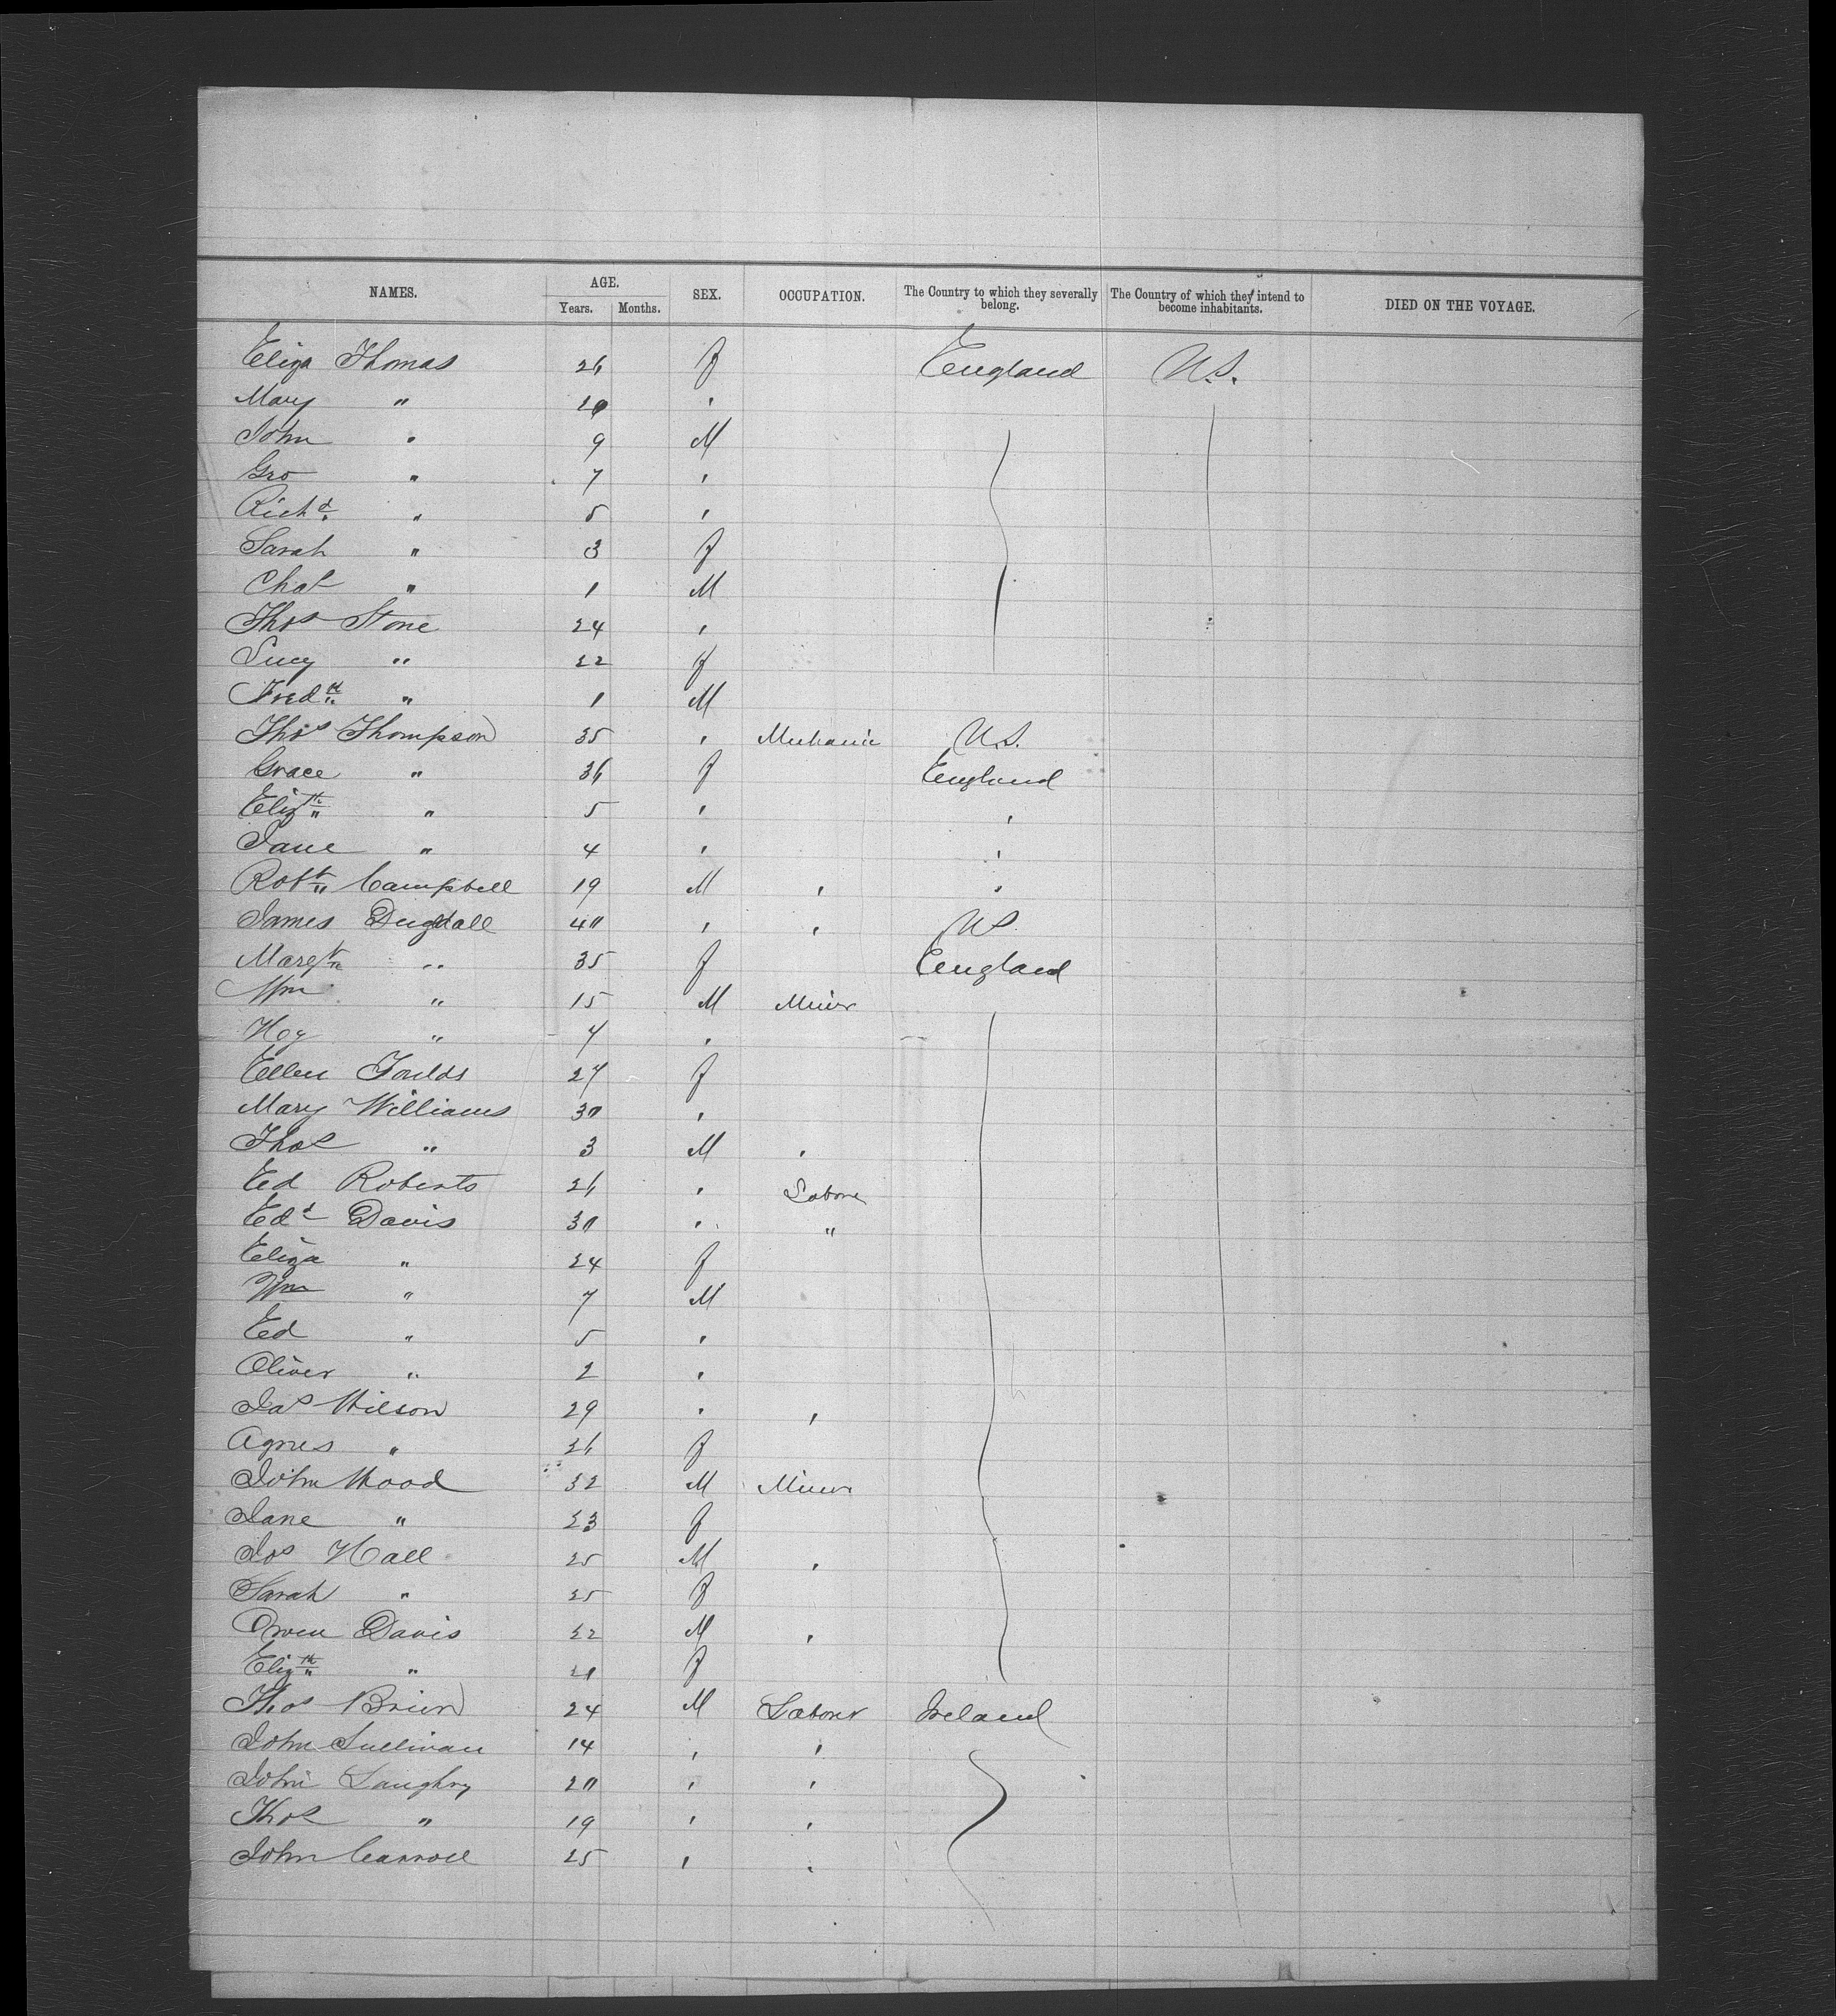 NAMES. AGE. SEX. OCCUPATION. The Country to which they severally belong. The Country of which they intend to become inhabitants. DIED ON THE VOYAGE.
Years. Months.
Eliza Thomas 26 f England U.S.
Mary " 20 "
John " 9 M
Geo " 7 "
Richd " 5 "
Sarah " 3 f
Chas " 1 M
Thos Stone 24 "
Lucy " 22 f
Fredk " 1 M
Thos Thompson 35 " Mechanic U.S.
Grace " 36 f England
Elizth " 5 " "
Jane " 4 " "
Robt Campbell 19 M " "
James Dugdall 40 " " US
Margt " 35 f England
Wm " 15 M Miner
Hey " 7 "
Ellen Foulds 27 f
Mary Williams 30 "
Thos " 3 M "
Ed Roberts 26 " Labore
Edd Davis 30 " "
Eliza " 24 f
Wm " 7 M
Ed " 5 "
Oliver " 2 "
Jas Wilson 29 " "
Agnes " 26 f
John Wood 32 M Miner
Jane " 23 f
Jos Hall 25 M "
Sarah " 25 f
Owen Davis 22 M "
Elizth " 21 f
Thos Brien 24 M Laborer Ireland
John Sullivan 14 " "
John Laughry 20 " "
Thos " 19 " "
John Carroll 25 " "